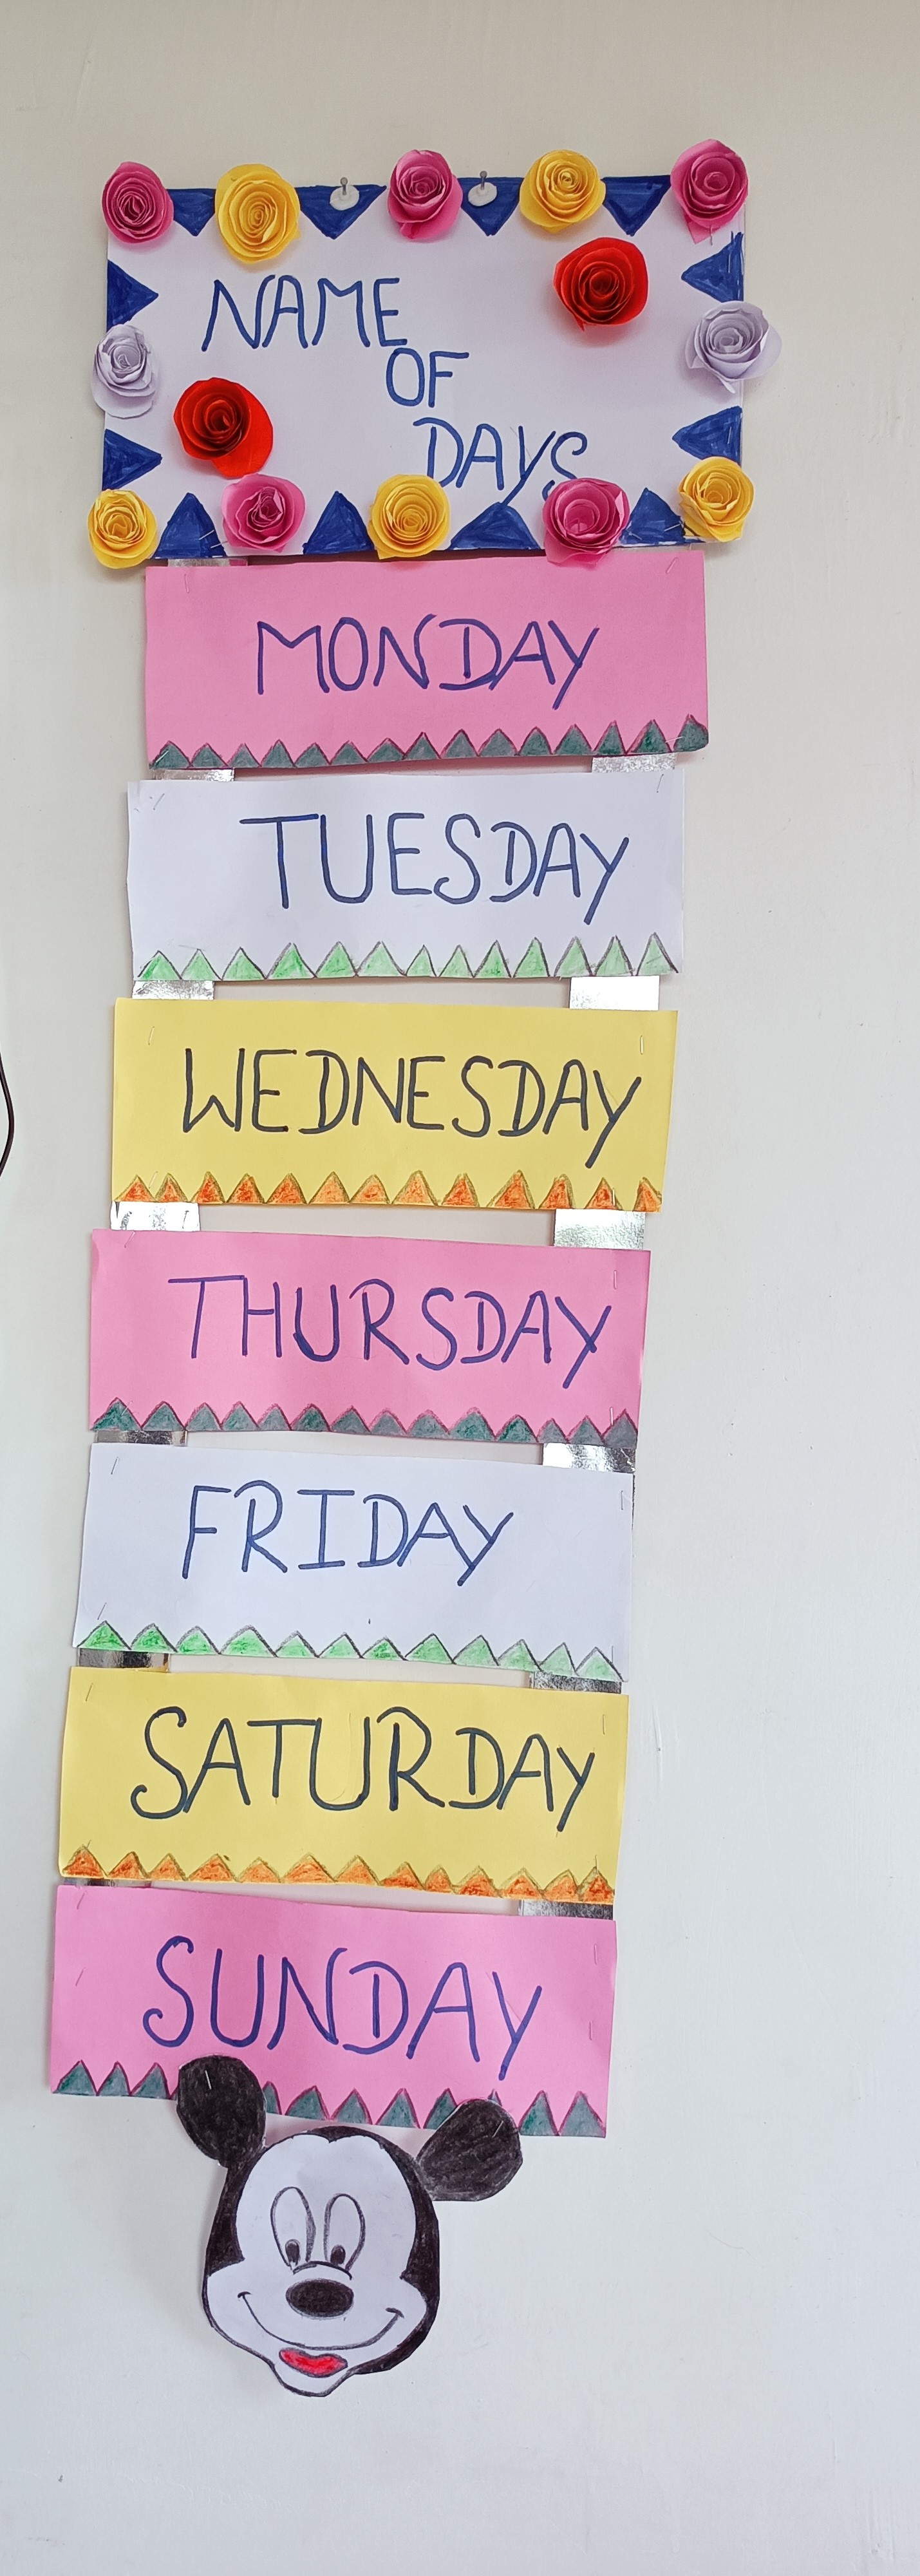 NAME
OF
DAYS
MONDAY
TUESDAY
WEDNESDAY
THURSDAY
FRIDAY
SATURDAY
SUNDAY